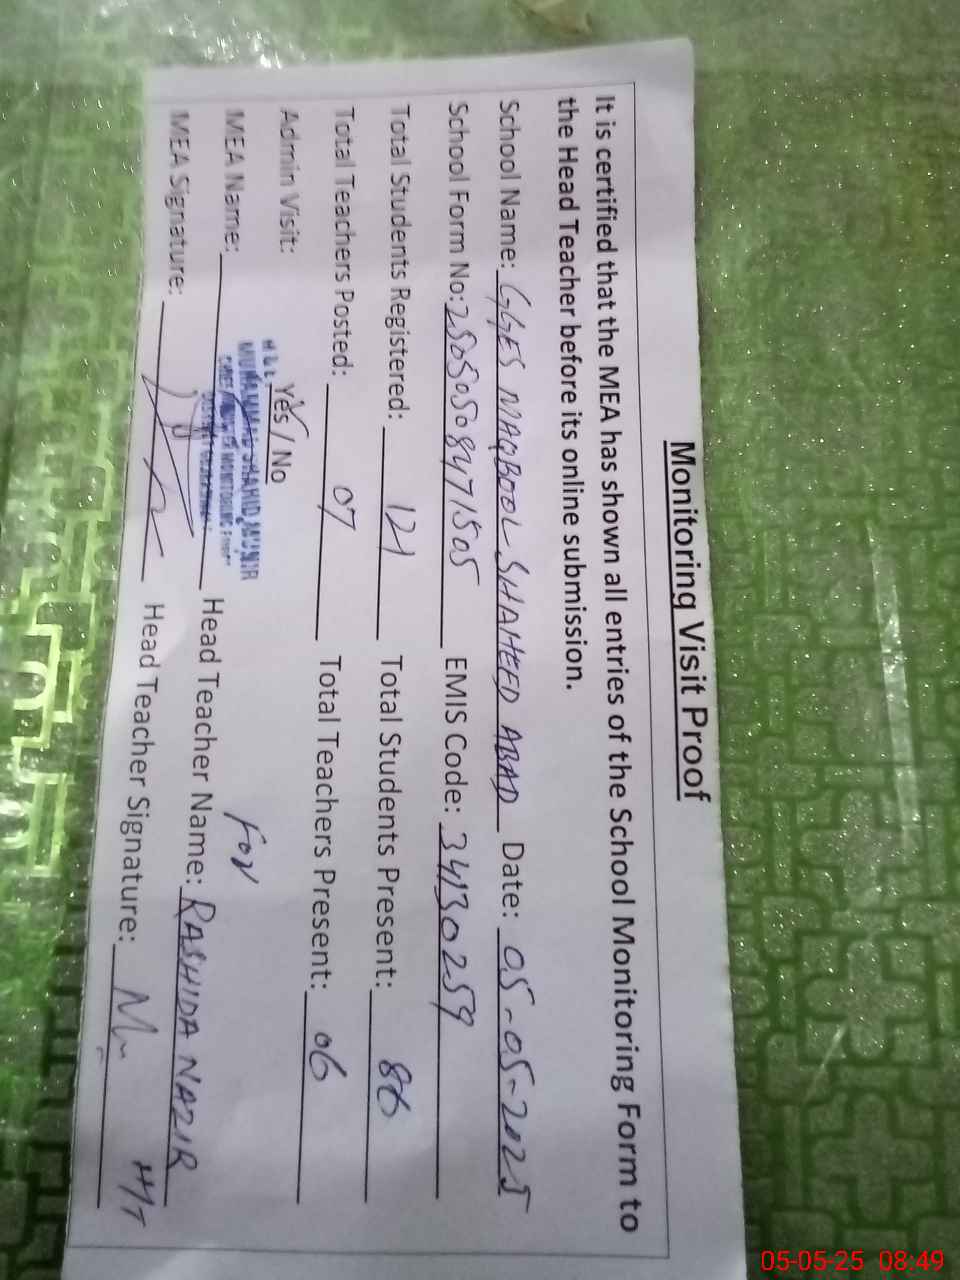 Monitoring Visit Proof
It is certified that the MEA has shown all entries of the School Monitoring Form to
the Head Teacher before its online submission.
School Name: GGES MAQBOOL SHAHEED ABAD Date: 05-05-2025
School Form No: 25050508471505 EMIS Code: 34130259
Total Students Registered: 121 Total Students Present: 86
Total Teachers Posted: 07 Total Teachers Present: 06
Admin Visit: Yes / No
MUHAMMAD SHAHID MUNIR
For
MEA Name: Head Teacher Name: RASHIDA NAZIR
MEA Signature: Head Teacher Signature: H/T
05-05-25 08:49